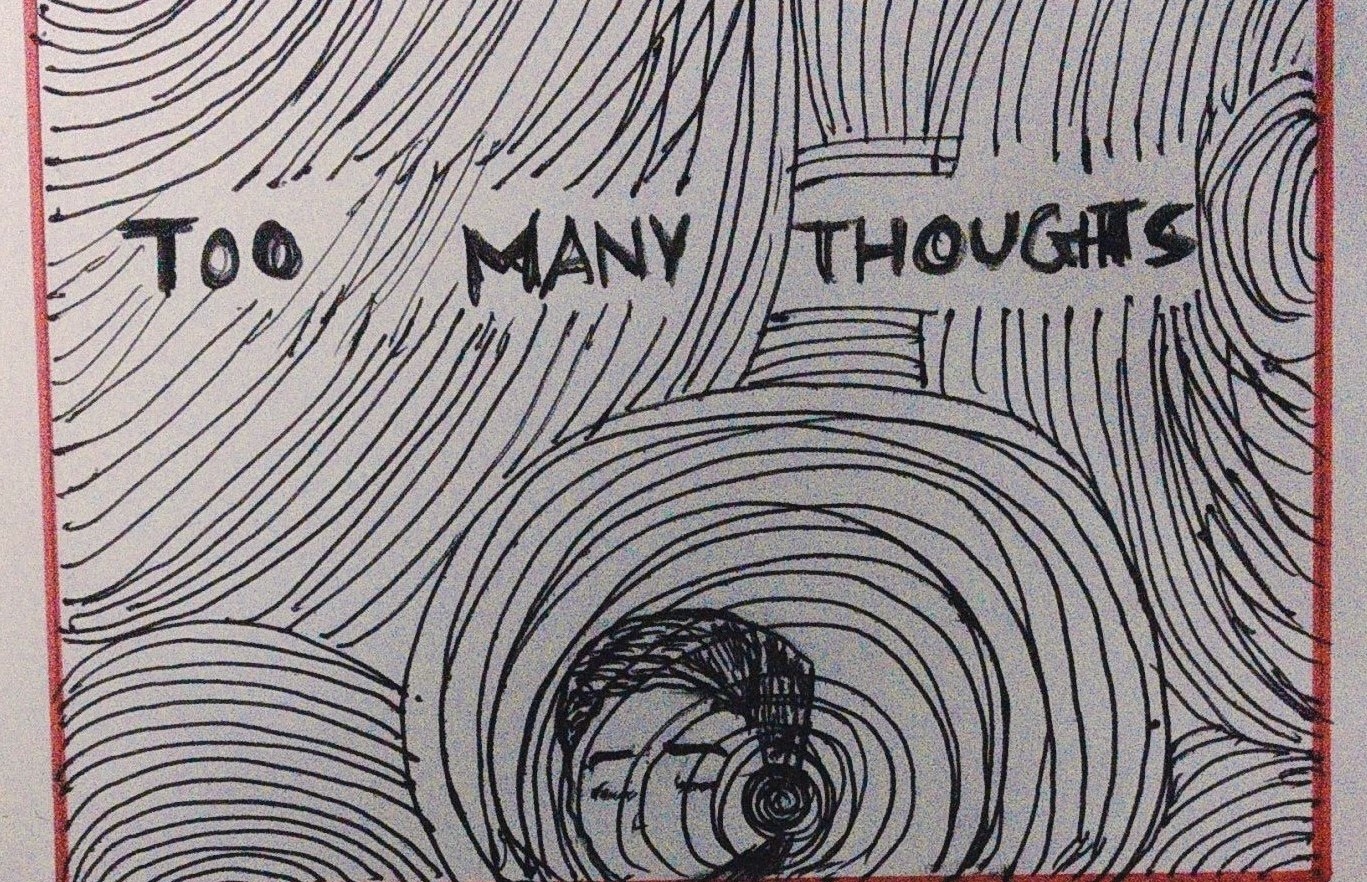 TOO MANY THOUGHTS